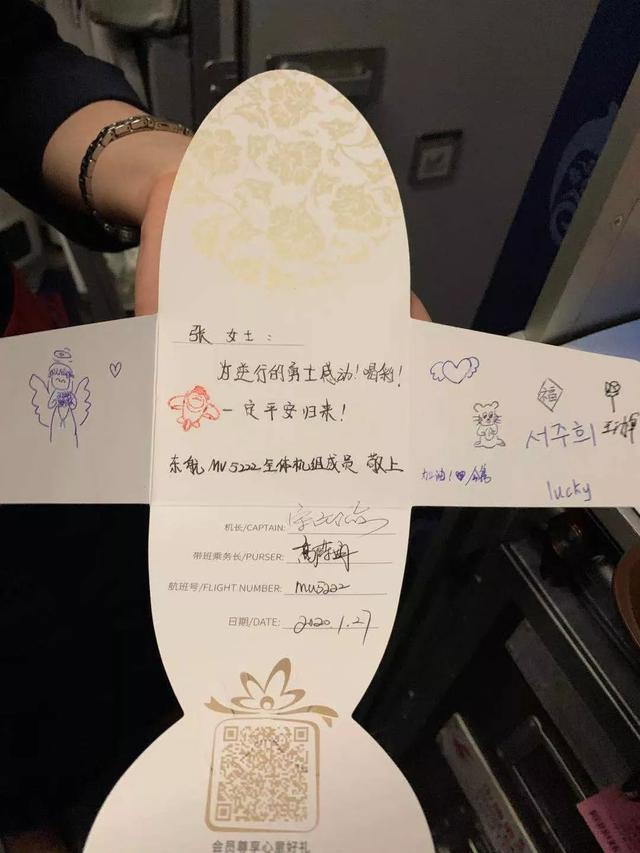 张 女士：
为逆行的勇士感动！喝彩！
一定平安归来！
东航 MU5222 全体机组成员 敬上
福
서주희
加油！
lucky
机长/CAPTAIN:
带班乘务长/PURSER:
航班号/FLIGHT NUMBER: MU5222
日期/DATE: 2020.1.27
会员尊享心意好礼